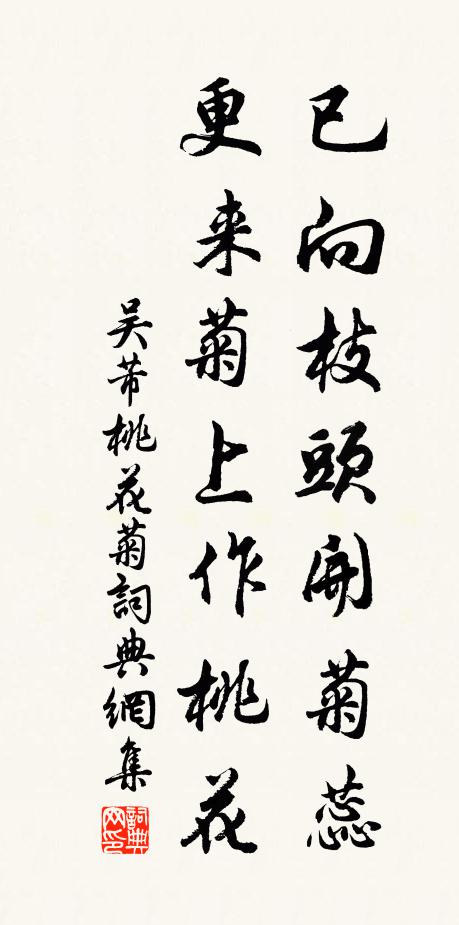 已向枝頭開菊蕊
更来菊上作桃花
吴芾桃花菊詞典網集
詞典
网印